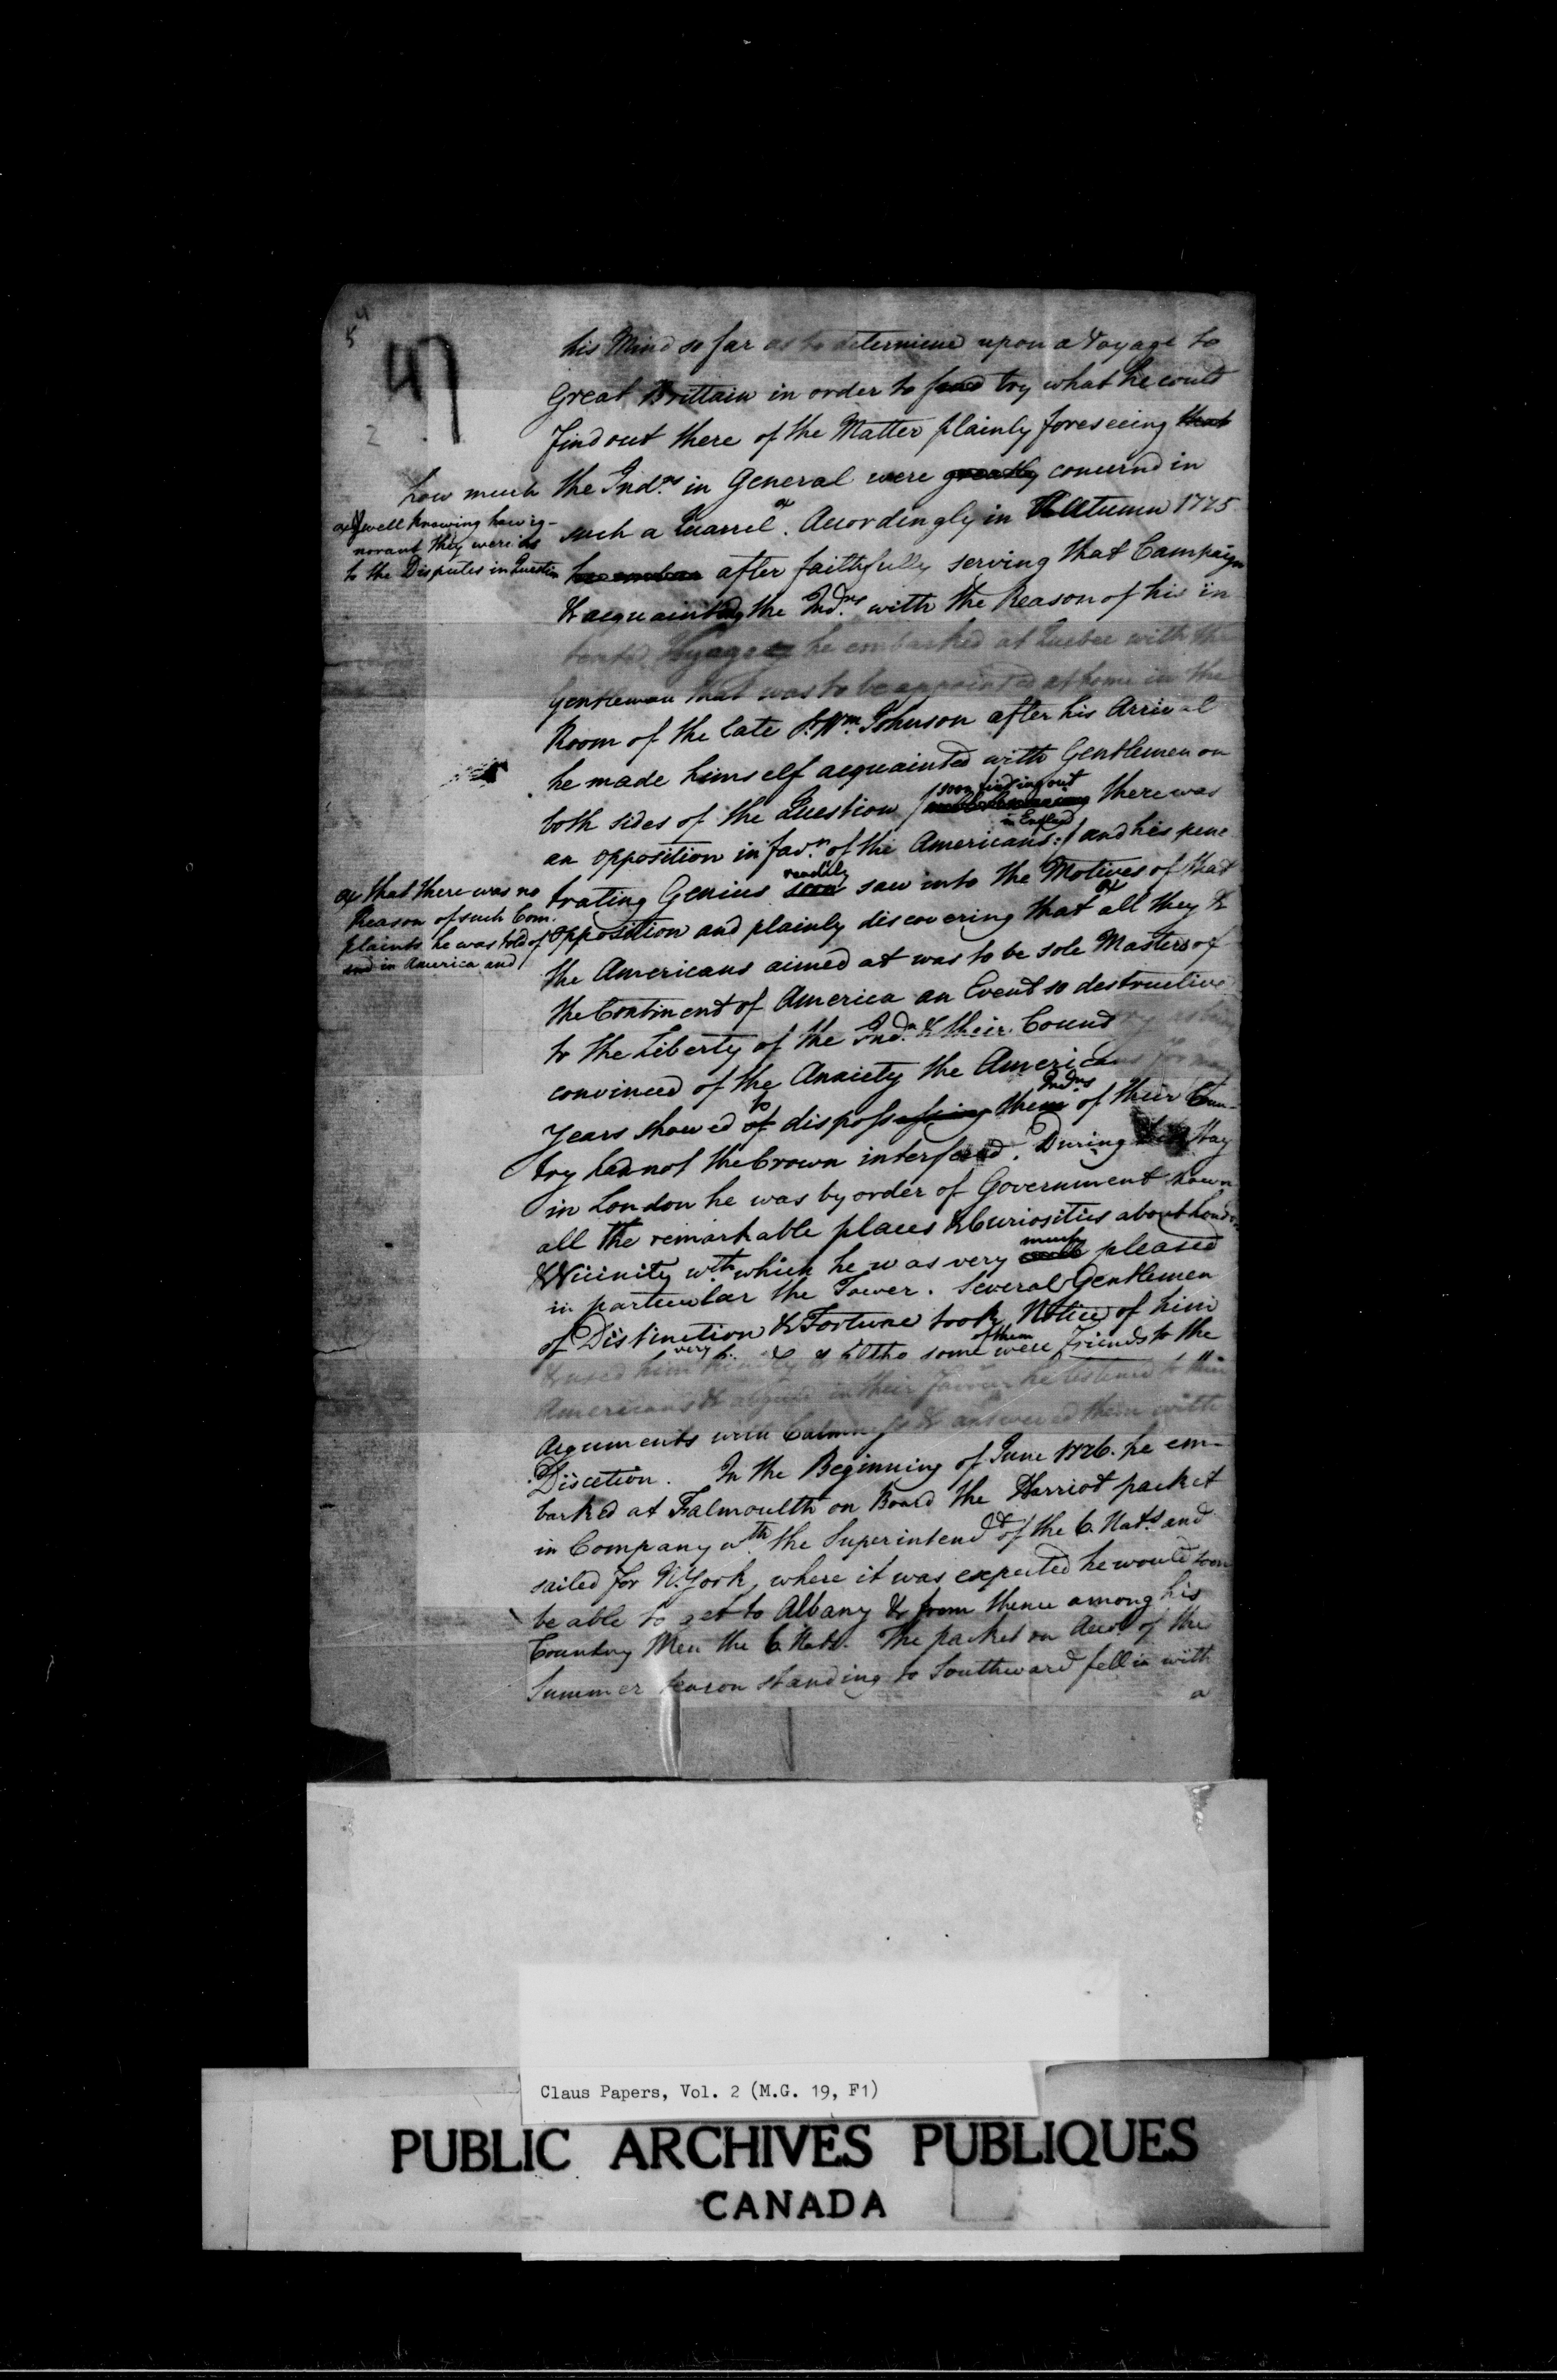 54
47
2
his Mind so far as to determined upon a Voyage to
Great Brittain in order to find try what he could
find out there of the Matter plainly foreseeing that
how much the Ind.ns in General were greatly concernd in
such a Quarrel x. Accordingly in Autumn 1775
x well knowing how ig-
norant they were as
to the Disputes in Question
he embar after faithfully serving that Campaign
& acquainting the Ind.ns with the Reason of his in
tended Voyage he embarked at Quebec with the
Gentleman that was to be appointed at home in the
Room of the late Sr. Wm. Johnson after his Arrival
he made himself acquainted with Gentlemen on
both sides of the Question / soon finding out there was
an opposition in favr. of the Americans in Engld :/ and his pene
trating Genius soon readily saw into the Motives of that
x that there was no
Reason of such Com
plaints he was told of
and in America and
opposition and plainly discovering that x all they &
the Americans aimed at was to be sole Masters of
the Continent of America an Event so destructive
to the Liberty of the Ind.n & their Country as being
convinced of the Anxiety the Americans for many
Years showed of to dispossessing them Ind.ns of their Coun-
try had not the Crown interfered. During his Stay
in London he was by order of Government shown
all the remarkable places & Curiosities about London
& Vicinity wth. which he was very much pleased
in particular the Tower. Several Gentlemen
of Distinction & Fortune took Notice of him
& used him very kindly & altho some of them were Friends to the
Americans & argued in their Favour he listened to their
Arguments with Calmness & answered them with
Discetion. In the Beginning of June 1776. he em-
barked at Falmouth on Board the Harriot packet
in Company wth. the Superintendt. of the 6. Nats. and
sailed for N. York, where it was expected he would soon
be able to get to Albany & from thence among his
Country Men the 6. Nats. The packet on Acct. of the
Summer season standing to Southward fell in with
a
Claus Papers, Vol. 2 (M.G. 19, F1)
PUBLIC ARCHIVES PUBLIQUES
CANADA